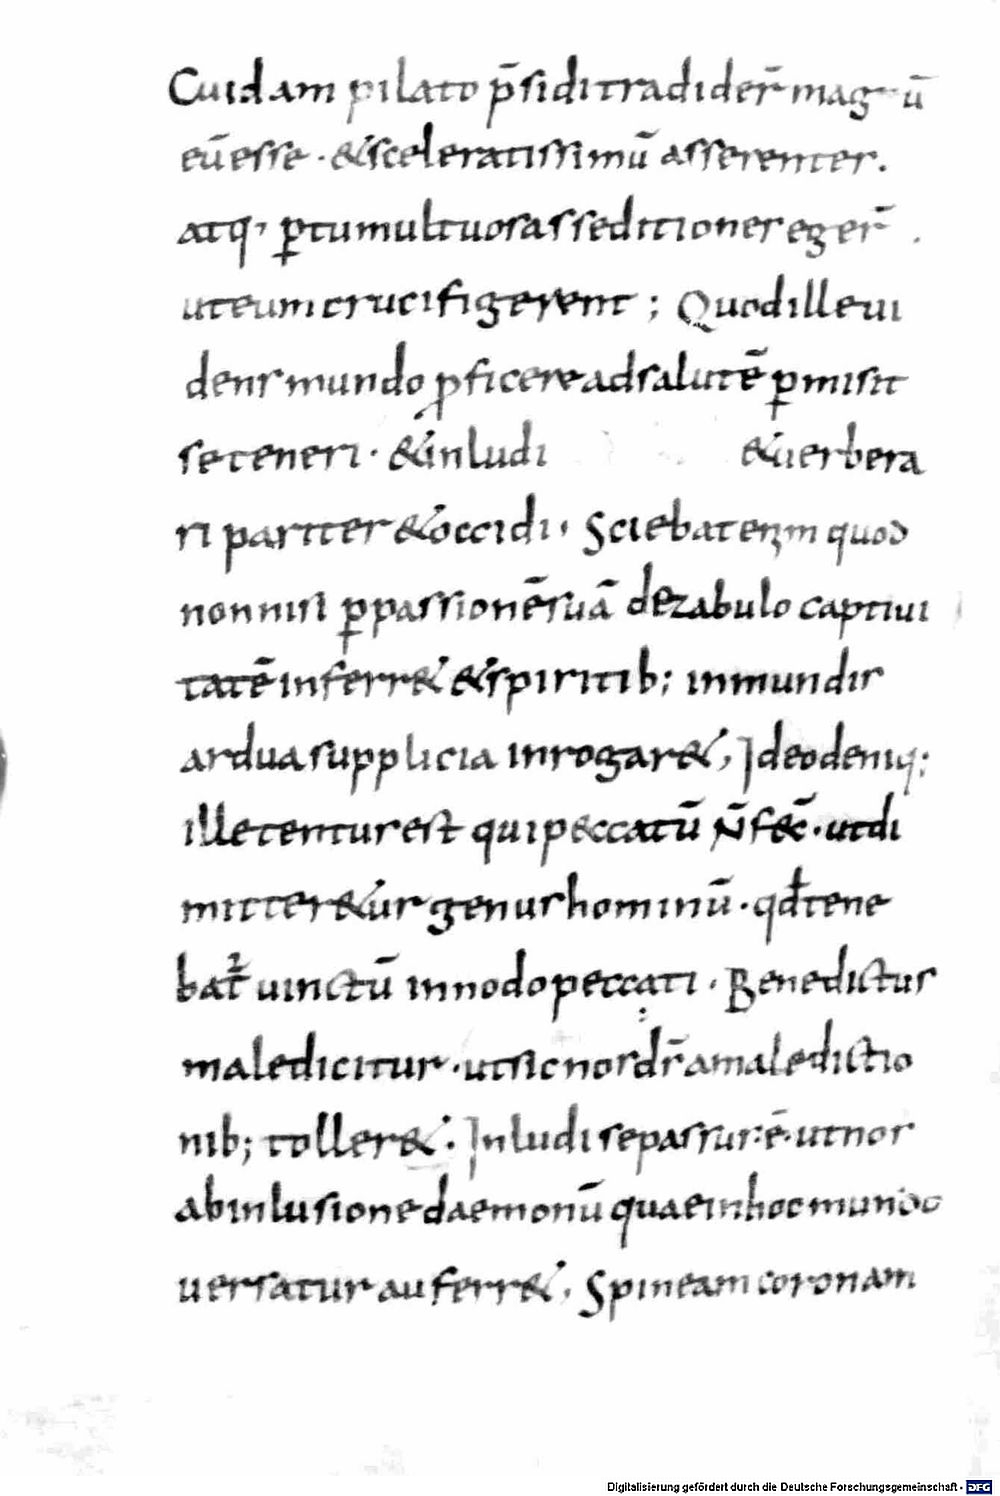 Cuidam pilato p̄sidi tradider̄ magū
eū esse · & sceleratissimū asserentes.
atq, ꝑ tumultuosas seditiones eger̄ .
ut eum crucifigerent ; Quod ille ui
dens mundo ꝓficere ad salutē ꝑmisit
se teneri · & inludi & uerbera
ri pariter & occidi , Sciebat enim quod
non nisi ꝑ passionē suā de zabulo captiui
tatē inferr& & spiritib; inmundis
ardua supplicia inrogar&, Ideo deniq;
ille tentus est qui peccatū n̄ fec̄ · ut di
mitter&ur genus hominū · qđ tene
bat᷑ uinctū in nodo peccati · Benedictus
maledicitur · ut sic nos dr̄a maledictio
nib; toller& . Inludi se passus ē · ut nos
ab inlusione daemonū quae in hoc mundo
uersatur auferr&, Spineam coronam
Digitalisierung gefördert durch die Deutsche Forschungsgemeinschaft - DFG